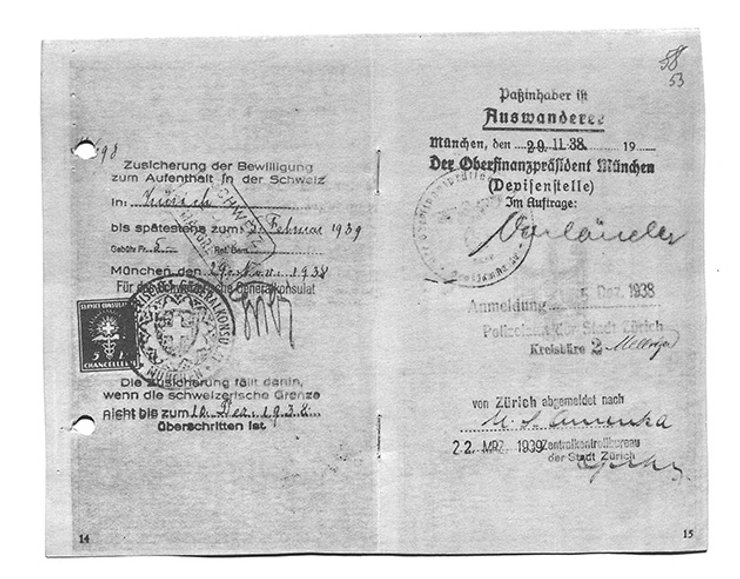 Zusicherung der Bewilligung
zum Aufenthalt in der Schweiz
In: Zürich
bis spätestens zum: Februar 1939
Gebühr Fr. 5.-
München den 29. Nov. 1938
Für das Schweizerische Generalkonsulat
SERVICE CONSULAIRE
5
CHANCELLERIE
MÜNCHEN
Die Zusicherung fällt dahin,
wenn die schweizerische Grenze
nicht bis zum 10. Dez. 1938
überschritten ist.
14
58
53
Paßinhaber ist
Auswanderer
München, den 29. 11. 38. 19
Der Oberfinanzpräsident München
(Devisenstelle)
Im Auftrage:
Vorländer
Anmeldung 5. Dez. 1938
der Stadt Zürich
Kreisbüro 2
von Zürich abgemeldet nach
U. S. Amerika
22. MRZ. 1939 Zentralkontrollbureau
der Stadt Zürich
15